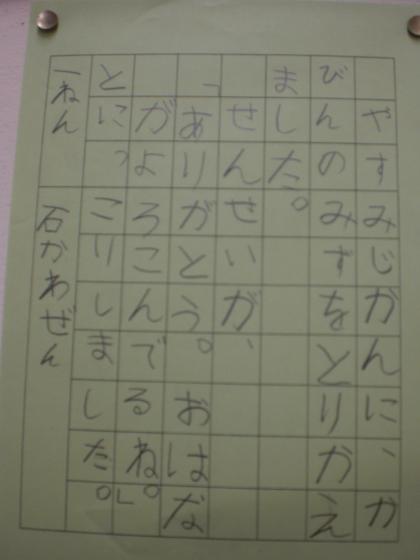 やすみじかんに、か
びんのみずをとりかえ
ました。
せんせいが、
「ありがとう。おはな
がよろこんでるね。」
とにっこりしました。
一ねん 石かわぜん